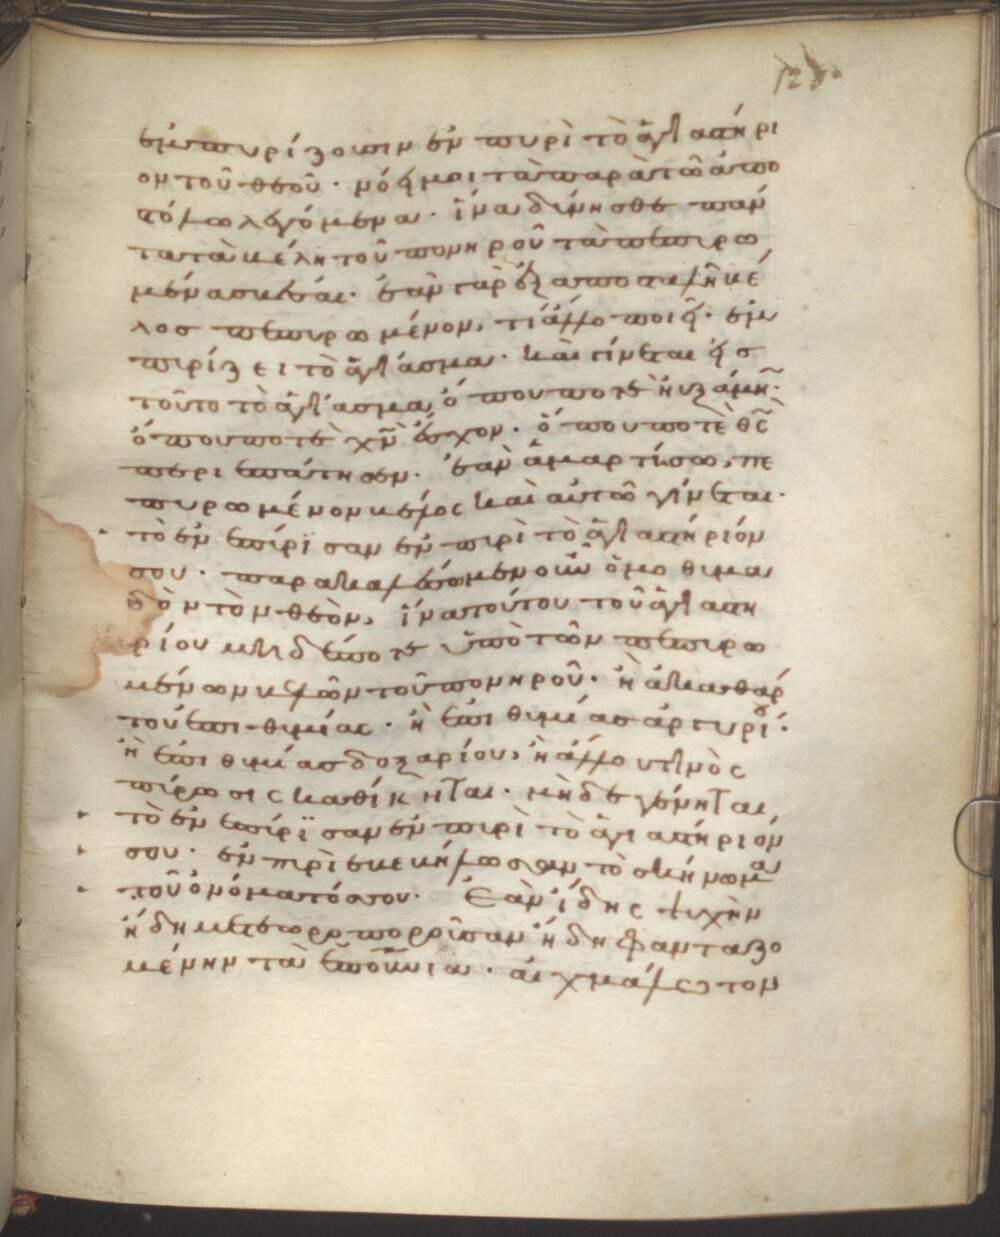 ἐμπυρίζουσιν ἐν πυρὶ τὸ ἁγιαστήρι
ον τοῦ θεοῦ· νόει μοι τὰ παρὰ τῶ ἀπο
στόλω λεγόμενα· ἵνα δύνησθε πάν
τα τὰ βέλη τοῦ πονηροῦ τὰ πεπυρω
μένα σβέσαι· ἐὰν γὰρ ἐξαποσταλῆ βέ
λος πεπυρωμένον, τί ἄλλο ποιεῖ· ἐμ
πυρίζει τὸ ἁγίασμα· καὶ γίνεται εἰς
τοῦτο τὸ ἁγίασμα, ὅπου ποτὲ ηὐξάμην·
ὅπου ποτὲ χν ἔσχον· ὅπου ποτὲ θς
περιεπάτησεν· ἐὰν ἁμαρτήσω, πε
πυρωμένον βέλος καὶ αὐτῶ γίνεται·
τὸ ἐνεπύρισαν ἐν πυρὶ τὸ ἁγιαστήριόν
σου· παρακαλέσωμεν οὖν ὁμοθυμα
δὸν τὸν θεὸν, ἵνα τούτου τοῦ ἁγιαστη
ρίου μηδέποτε ὑπὸ τῶν πεπυρω
μένων βελῶν τοῦ πονηροῦ· ἢ ἀκαθάρ
του ἐπιθυμίας· ἢ ἐπιθυμίας ἀργυρίου·
ἢ ἐπιθυμίας δοξαρίου, ἢ ἄλλου τινὸς
πύρωσις καθίκηται· μὴ δὲ γένηται,
τὸ ἐνεπύρισαν ἐν πυρὶ τὸ ἁγιαστήριόν
σου· ἐν πυρὶ ἐβεβήλωσαν τὸ σκήνωμα
τοῦ ὀνόματός σου· Ἐὰν ἴδης ψυχὴν
ἤδη μετεωροποροῦσαν ἤδη φανταζο
μένην τὰ ἐπουνια· αἰχμάλωτον